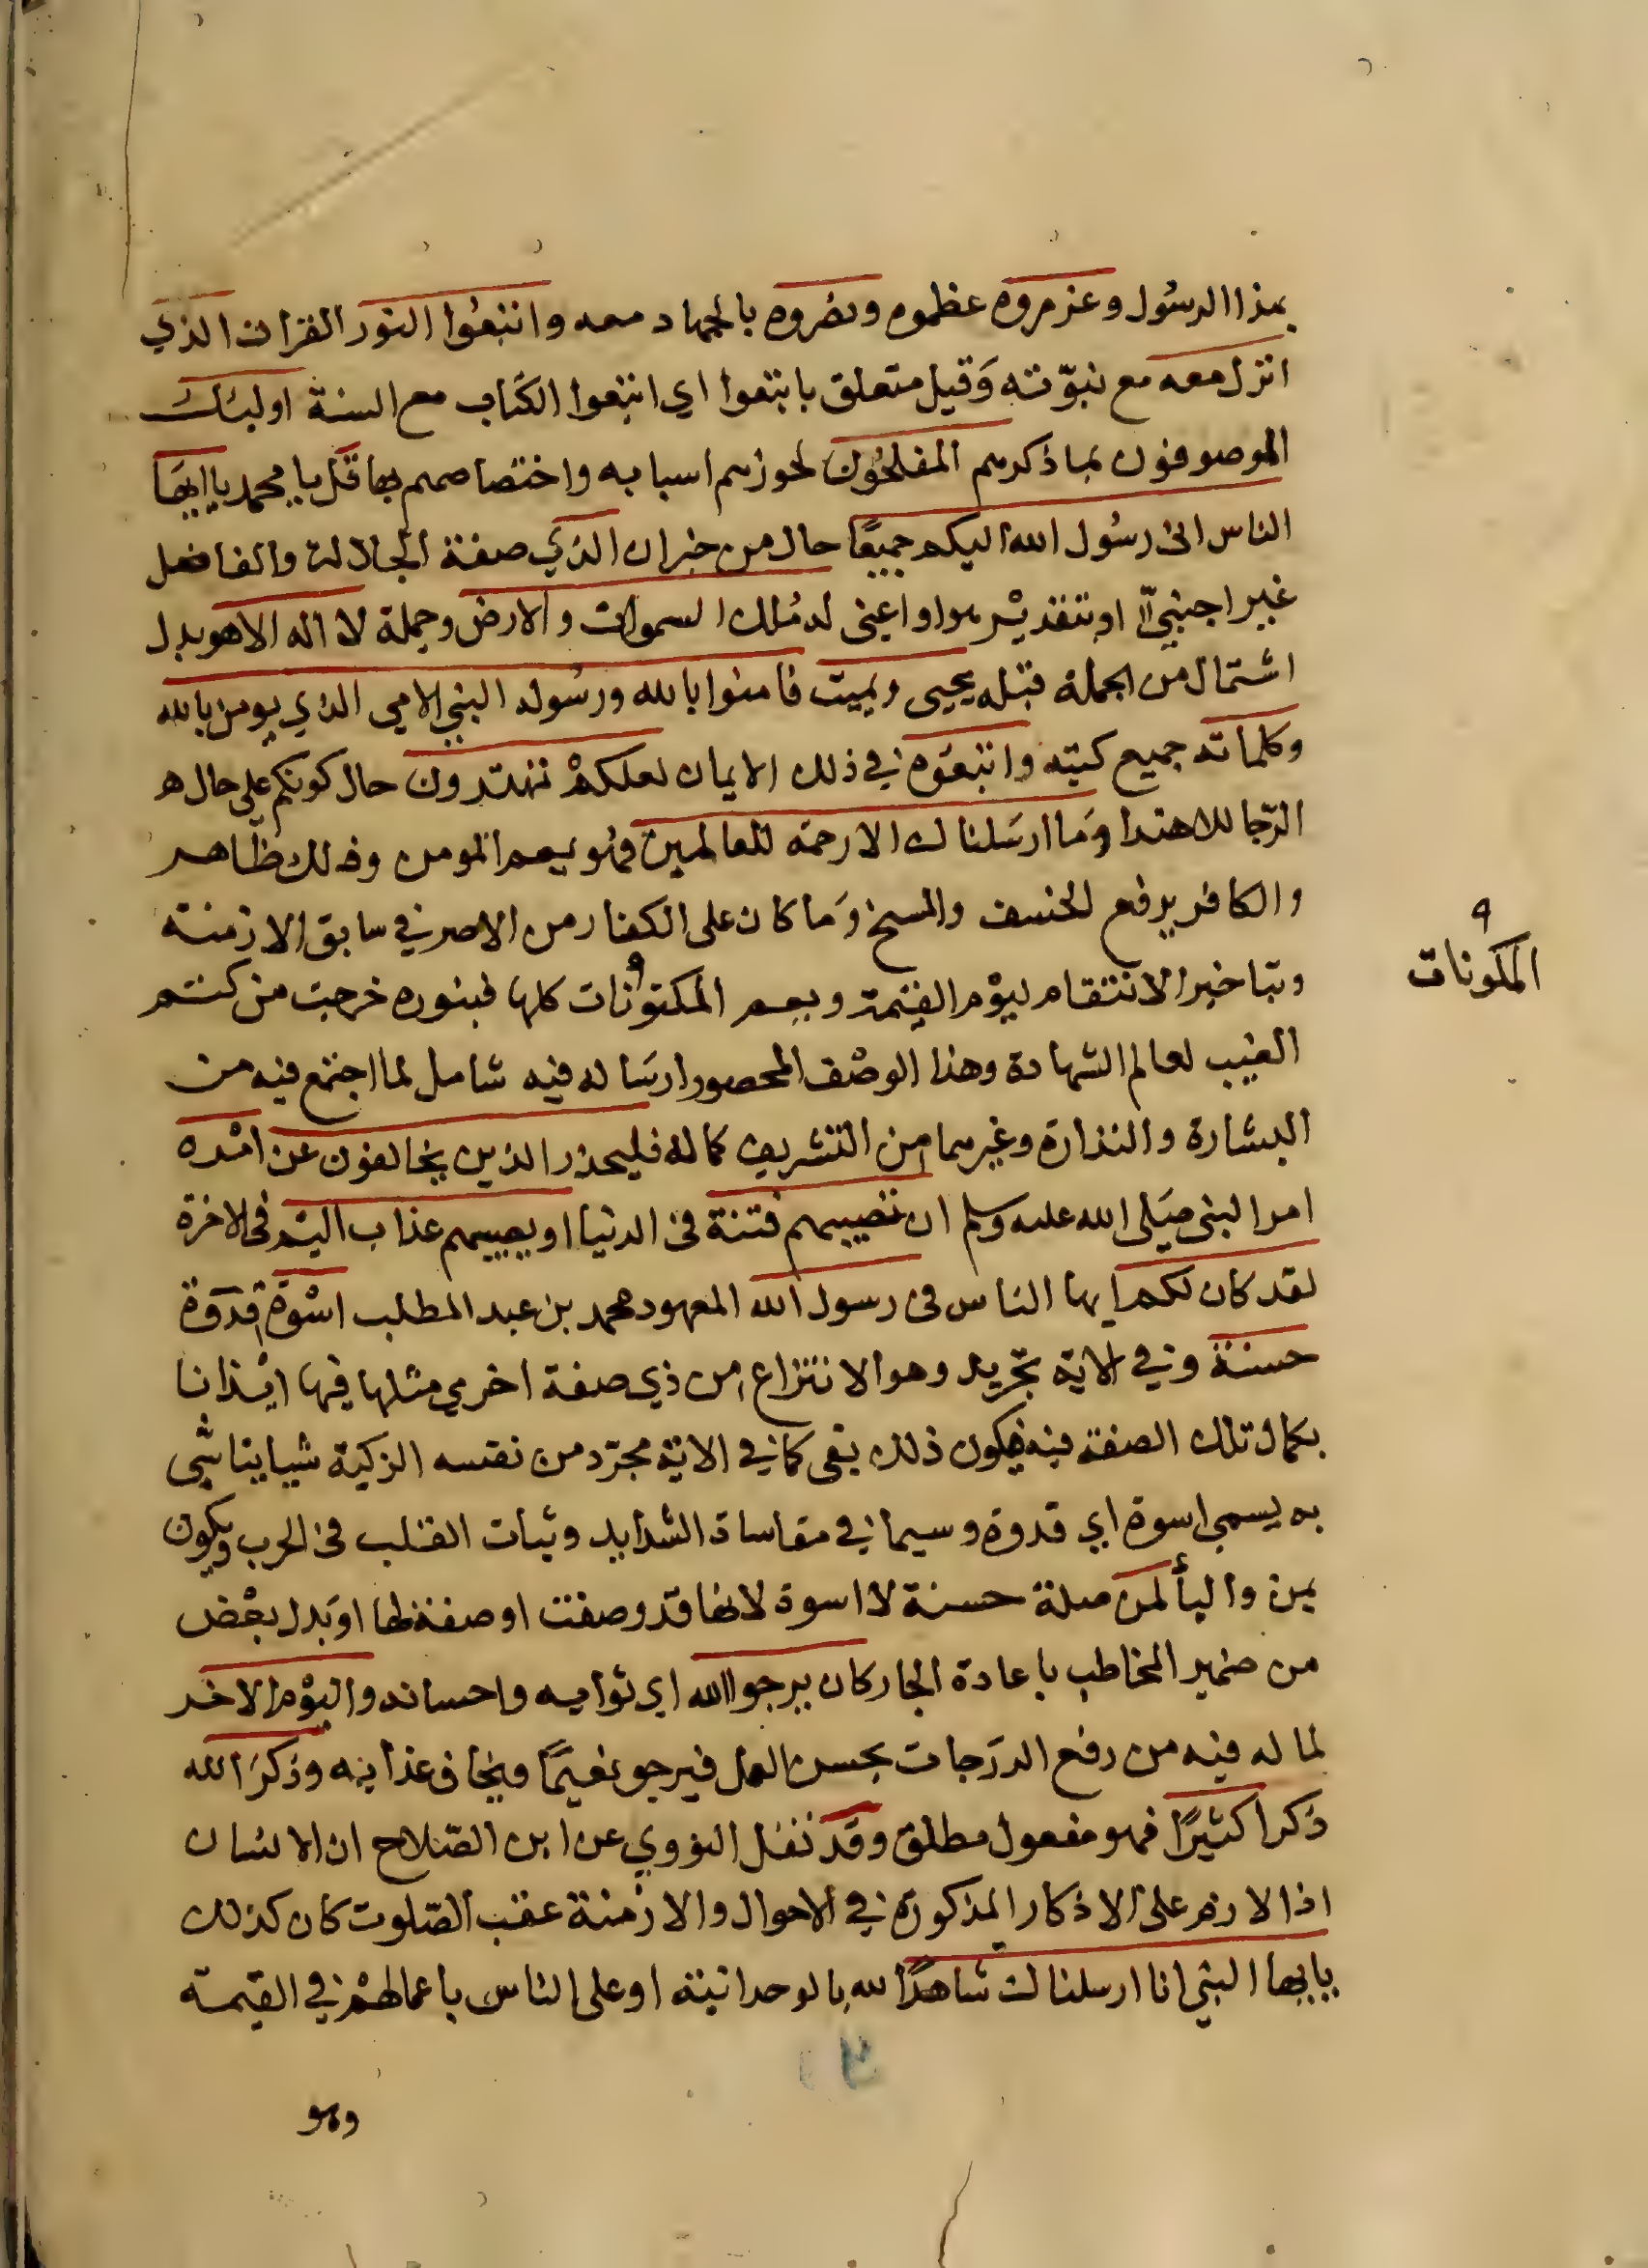 بهذا الرسُول وعزروه عظموه ونصُروه بالجهاد معه واتبعُوا النور القران الذي
انزل معه مع نبوّته وَقيل متعلق باتبعوا اي اتبعوا الكتاب مع السنة اولئك
الموصوفون بما ذكر هم المفلحُون لحوزهم اسبابه واختصاصهم بها قل يا محمد ياايهَا
الناس انى رسُول الله اليكم جميعًا حال من خبر ان الذي صفة الجلالة والفاضل
غير اجنبيّ او بتقديْر هوا واعنى له مُلك السموات والارض وجملة لا اله الا هو بدل
اشتمال من الجملة قبله يحيى ويميت فامنوا بالله ورسُوله النبي الامي الذي يومن بالله
وكلماته جميع كتبه واتبعُوه في ذلك الايمان لعلكمْ تهتدون حال كونكم على حال
الرّجا للاهتدا وَما ارسَلناك الا رحمة للعالمين فهُو يعم المومن وذلك ظاهر
والكافر برفع الخسف والمسخ وَما كان على الكفار من الاصر في سابق الازمنة
وبتاخير الانتقام ليوْم القيٰمة ويعم المكتونات كلها فبنوره خرجت من كتم
المكونات
الغيب لعالم الشهادة وهذا الوصْف المحصور ارسَاله فيه شامل لما اجتمع فيه من
البشارة والنذارة وغيرهما من التشريف كماله فليحذر الذين يخالفون عن امْره
امر النبى صَلى الله عليه وسلم ان تصيبهم فتنة فى الدنيا او يصيبهم عذاب اليم فى الاخرة
لقد كان لكم ايها الناس فى رسول الله المعهود محمد بن عبد المطلب اسْوة قدوَة
حسنة وفي الاية تجريد وهو الانتزاع من ذي صفة اخرى مثلها فيها ايْذانا
بكمال تلك الصفة فيه فيكون ذلك بفى كما في الاية مجرّد من نفسه الزكية شيا يتاسّى
به يسمى اسوة اي قدوة وسيما في مقاساة الشدايد وثبات القلب فى الحرب ويكون
بمن والبأ لمن صلة حسنة لا اسوة لانها قد وصفت او صفة لها او بَدل بعْض
من ضمير المخاطب باعادة الجار كان يرجوا الله اي ثوابه واحسانه واليوْم الاخر
لما له فيه من رفع الدرَجات بحسن العمل فيرجو نعيمًا ويخاف عذابه وذكرَ الله
ذكرا كثيرًا فهو مفعول مطلق وقد نقل النووي عن ابن الصّلاح ان الانسان
اذا لازم على الاذكار المذكورة في الاحوال والازمنة عقب الصّلوت كان كذلك
ياايها النبي انا ارسلناك شاهدًا لله بالوحدانية او على الناس باعمالهمْ في القيمة
وهو